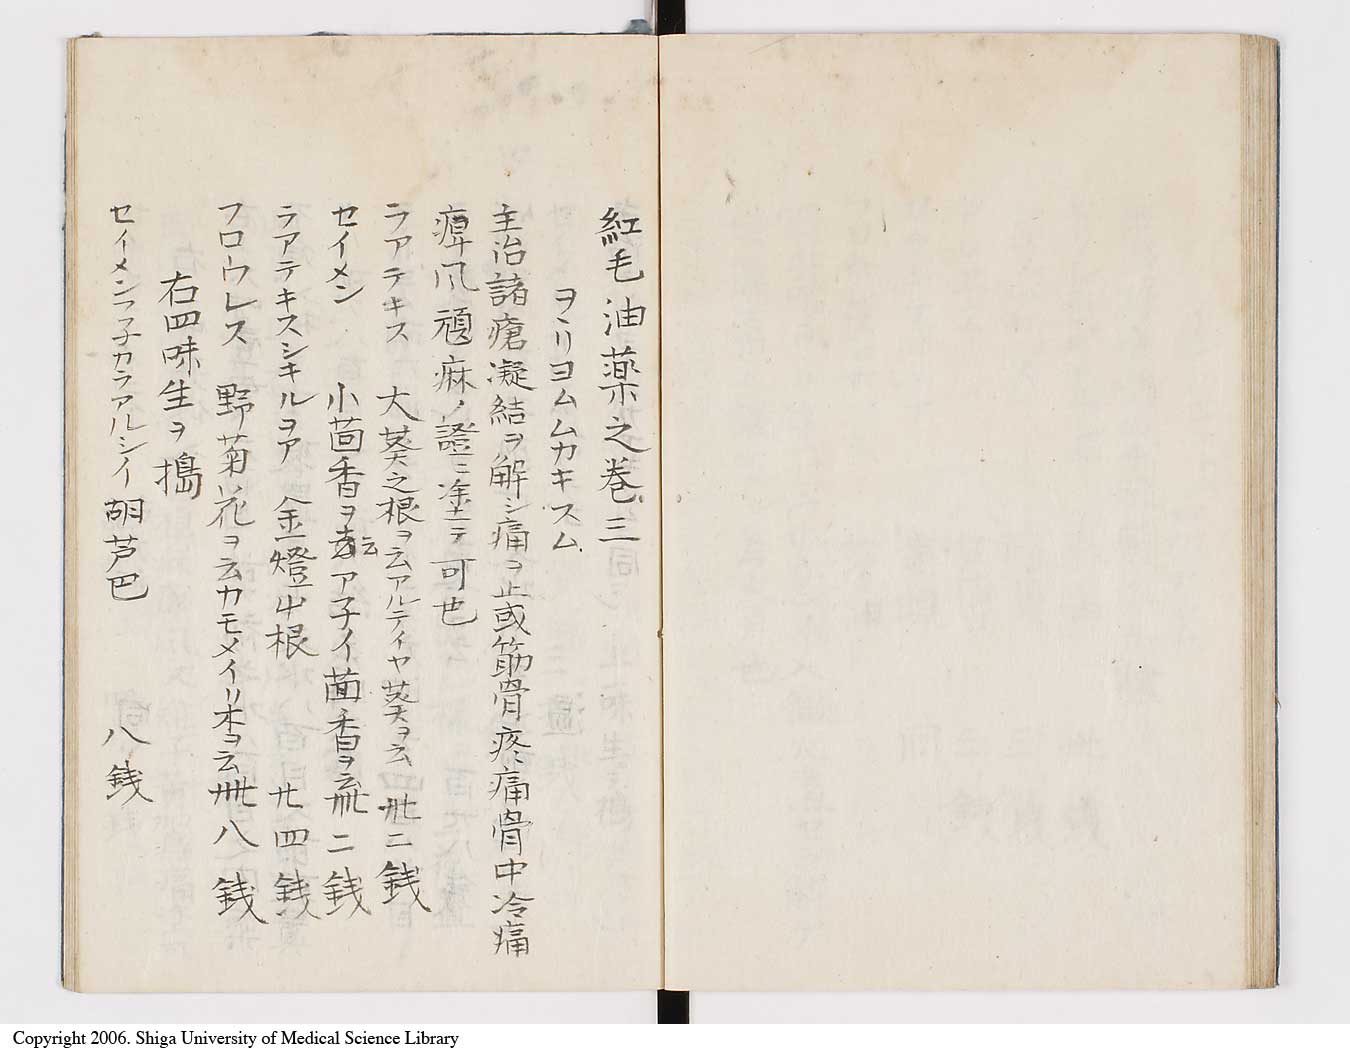 紅毛油薬之巻三
ヲヽリヨムムカキスム
主治諸瘡凝結ヲ解シ痛ヲ止或筋骨疼痛骨中冷痛
痺風頑麻ノ證ニ塗テ可也
ラアテキス 大葵之根ヲ云アルテイヤ葵ヲ云卅二銭
セイメン 小茴香ヲ云ア子イ茴香ヲ云卅二銭
ラアテキスシキルヲア 金燈山根 廿四銭
フロウレス 野菊花ヲ云カモメイリ本ヲ云卅八銭
右四味生ヲ搗
セイメンフ子カラアルシイ 胡芦巴 八銭
Copyright 2006. Shiga University of Medical Science Library